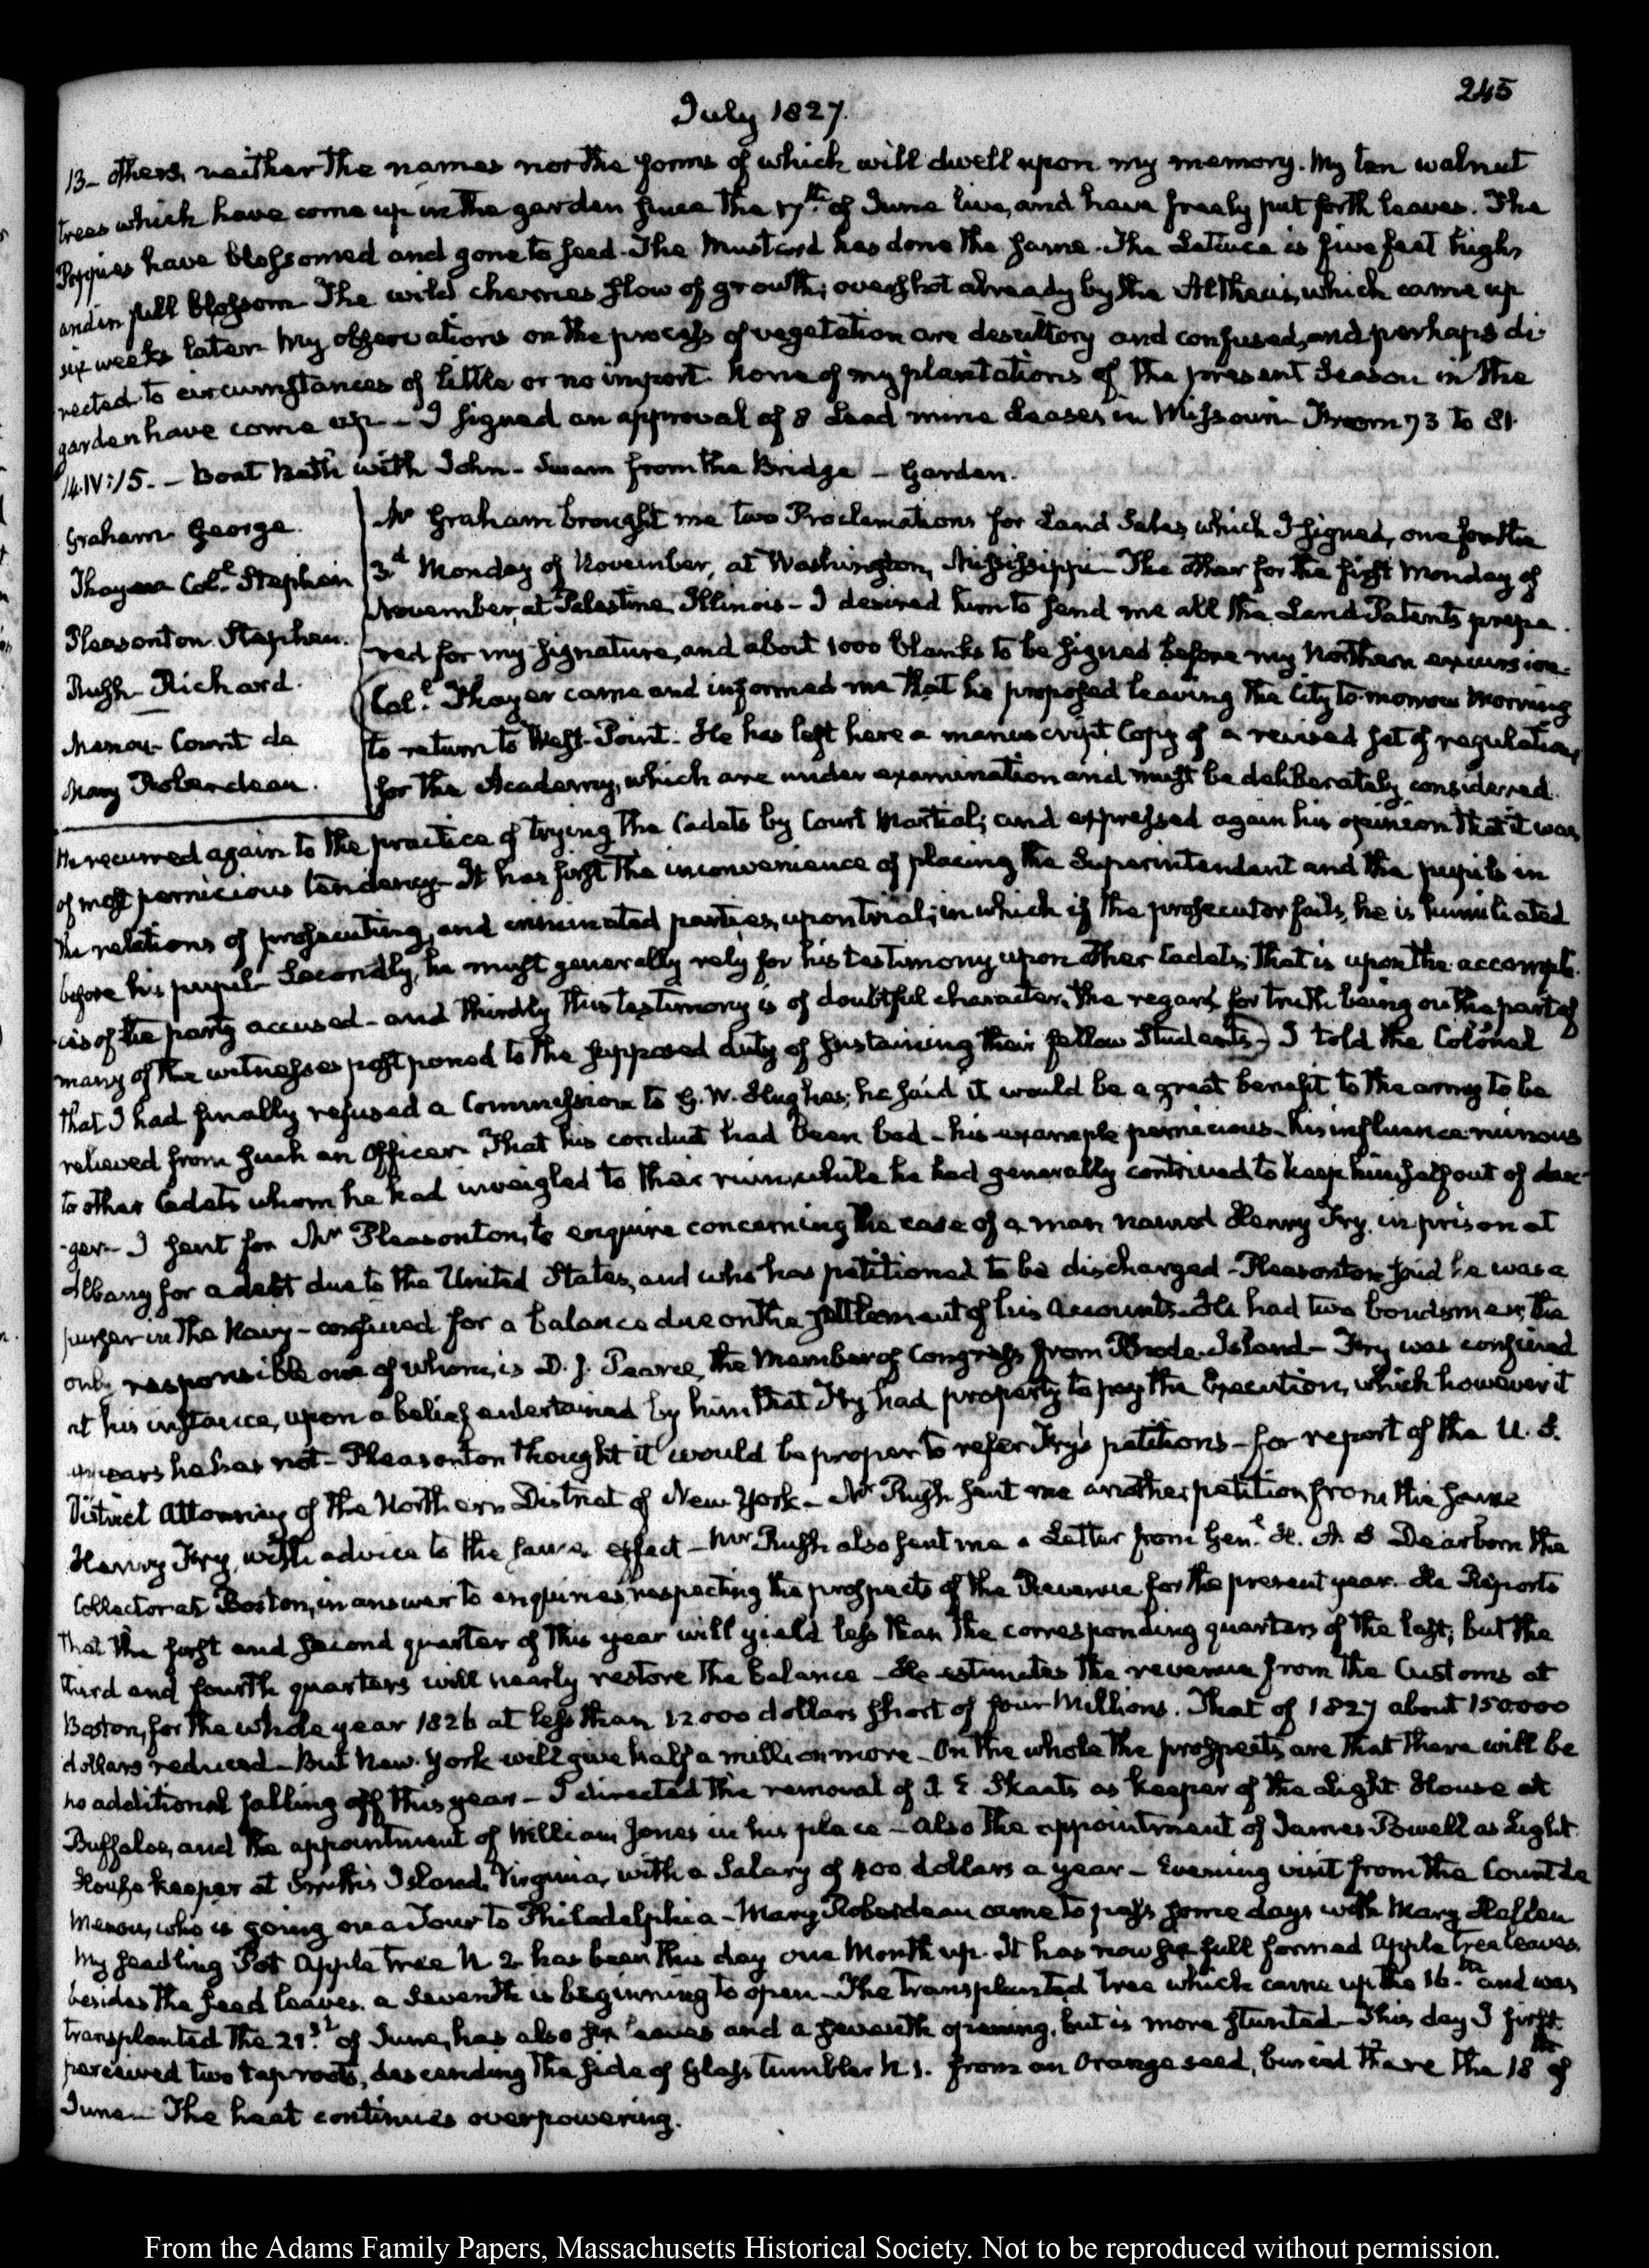 245
July 1827.
13- others, neither the names nor the forms of which will dwell upon my memory. My ten walnut
trees which have come up in the garden since the 17th of June live, and have freely put forth leaves. The
Poppies have blossomed and gone to seed. The Mustard has done the same. The Lettuce is five feet high,
and in full blossom. The wild cherries slow of growth; overshot already by the Altheas, which came up
six weeks later. My observations on the process of vegetation are desultory and confused, and perhaps di-
rected to circumstances of little or no import. None of my plantations of the present Season in the
garden have come up - I signed an approval of 8 Lead mine Leases in Missouri from 73 to 81.
14. IV:15. - Boat Bath with John - Swam from the Bridge - Garden.
Graham George.
Thayer Col.l Stephen
Pleasonton. Stephen.
Rush Richard.
Menou- Count de
Mary Roberdeau.
Mr Graham brought me two Proclamations for Land Sales, which I signed, one for the
3d Monday of November, at Washington, Mississippi - The other for the first Monday of
November, at Palestine, Illinois - I desired him to send me all the Land Patents prepa-
red for my signature, and about 1000 blanks to be signed before my Northern excursion.
Col.l Thayer came and informed me that he proposed leaving the City to-morrow morning
to return to West-Point. He has left here a manuscript Copy of a revised set of regulations
for the Academy, which are under examination and must be deliberately considered.
He recurred again to the practice of trying the Cadets by Court Martial; and expressed again his opinion that it was
of most pernicious tendency - It has first the inconvenience of placing the Superintendant and the pupils in
the relations of prosecuting, and criminated parties, upon trial; in which if the prosecutor fails, he is humiliated
before his pupil - Secondly, he must generally rely for his testimony upon other Cadets, that is upon the accompli-
ces of the party accused - and thirdly this testimony is of doubtful character, the regard for truth being on the part of
many of the witnesses postponed to the supposed duty of sustaining their fellow Students) I told the Colonel
that I had finally refused a Commission to G. W. Hughes; he said it would be a great benefit to the army to be
relieved from such an Officer. That his conduct had been bad - his example pernicious - his influence ruinous
to other Cadets whom he had inveigled to their ruin, while he had generally contrived to keep himself out of dan-
ger - I sent for Mr Pleasonton, to enquire concerning the case of a man named Henry Fry, in prison at
Albany for a debt due to the United States, and who has petitioned to be discharged - Pleasonton said he was a
purser in the Navy - confined for a balance due on the settlement of his Accounts. He had two bondsmen, the
only responsible one of whom, is D. J. Pearce, the Member of Congress from Rhode-Island - Fry was confined
at his instance, upon a belief entertained by him that Fry had property to pay the Execution, which however it
appears he has not - Pleasonton thought it would be proper to refer Fry's petitions - for report of the U. S.
District Attorney of the Northern District of New York - Mr Rush sent me another petition from the same
Henry Fry, with advice to the same effect - Mr Rush also sent me a Letter from Gen.l H. A. S Dearborn the
Collector at Boston, in answer to enquiries, respecting the prospects of the Revenue for the present year. He Reports
that the first and second quarter of this year will yield less than the corresponding quarters of the last; but the
third and fourth quarters will nearly restore the balance - He estimates the revenue from the Customs at
Boston, for the whole year 1826 at less than 12000 dollars short of four Millions. That of 1827 about 150000
dollars reduced - But New-York will give half a million more - On the whole the prospects are that there will be
no additional falling off this year - I directed the removal of J E. Skaats as keeper of the Light House at
Buffaloe, and the appointment of William Jones in his place - also the appointment of James Powell as Light
House keeper at Smith's Island, Virginia, with a Salary of 400 dollars a year - Evening visit from the Count de
Menou, who is going on a Tour to Philadelphia - Mary Roberdeau came to pass some days with Mary Hellen
My seedling Pot Apple tree N 2 has been this day one Month up. It has now six full formed Apple tree leaves
besides the seed leaves. a Seventh is beginning to open - The transplanted tree which came up the 16.th and was
transplanted the 21st of June, has also six leaves and a seventh opening, but is more stunted - This day I first
perceived two tap roots, descending the side of Glass tumbler N 1. from an Orange seed, buried there the 18th of
June - The heat continues overpowering.
From the Adams Family Papers, Massachusetts Historical Society. Not to be reproduced without permission.